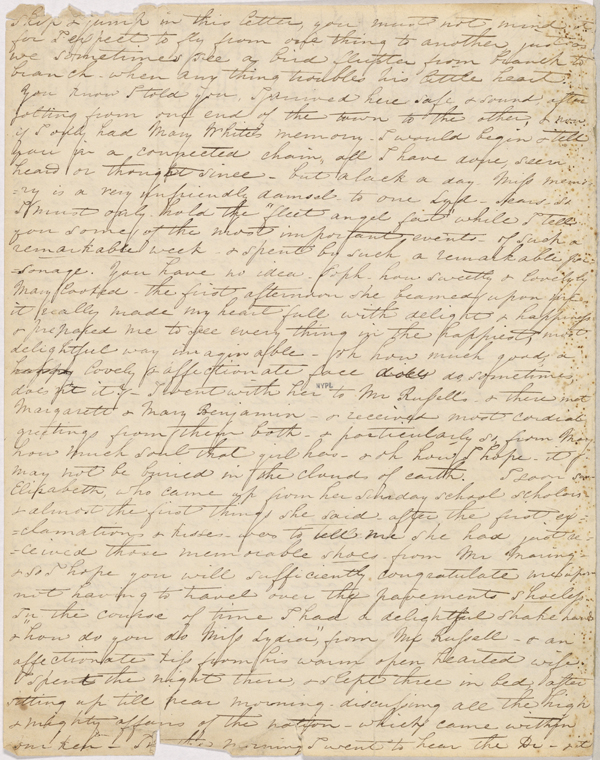 Skip & jump in this letter, you must not mind it
for I expect to fly from one thing to another, just as
we sometimes see a bird flutter from branch to
branch - when any thing troubles his little heart.
You know I told you I arrived here safe & sound after
jolting from one end of the town to the other, & now
if I only had Mary White's memory - I would begin & tell
you in a connected chain, all I have done, seen
heard or thought since - but alack a day - Miss mem=
=ry is a very unfriendly damsel - to one Lyd - Sears, so
I must only hold the fleet angel fast while I tell
you some of the most important events - of such a
remarkable week - & spent by such a remarkable per=
=sonage. You have no idea - Soph - how sweetly & lovely
Mary looked - the first afternoon she beamed upon me
it really made my heart full with delight & happiness
& prepared me to see every thing in the happiest, most
delightful way imaginable - Oh how much good, a
lovely & affectionate face do, sometimes
does it it? - I went with her to Mr Russells - & there met
Margarett & Mary Benjamin - & received most cordial
greetings from them both - & particularly so, from Mary
how much soul that girl has - & oh how I hope - it
may not be buried in the clouds of earth. I soon saw
Elizabeth, who came up from her sunday school scholars
& almost the first thing she said after the first ex=
=clamations, & kisses - was to tell me she had just re=
=ceived those memorable shoes - from Mr
& so I hope you will sufficiently congratulate me upon
not having to travel over the pavements shoeless -
In the course of time I had a delightful shake hand
& how do you do Miss Lydia, from Mr Russell - & an
affectionate kiss from his warm open hearted wife.
I spent the night there, & slept three in bed, after
sitting up till near morning - discussing all the high
& mighty affairs of the nation - which came within
our ken - morning I went to hear the Dr -